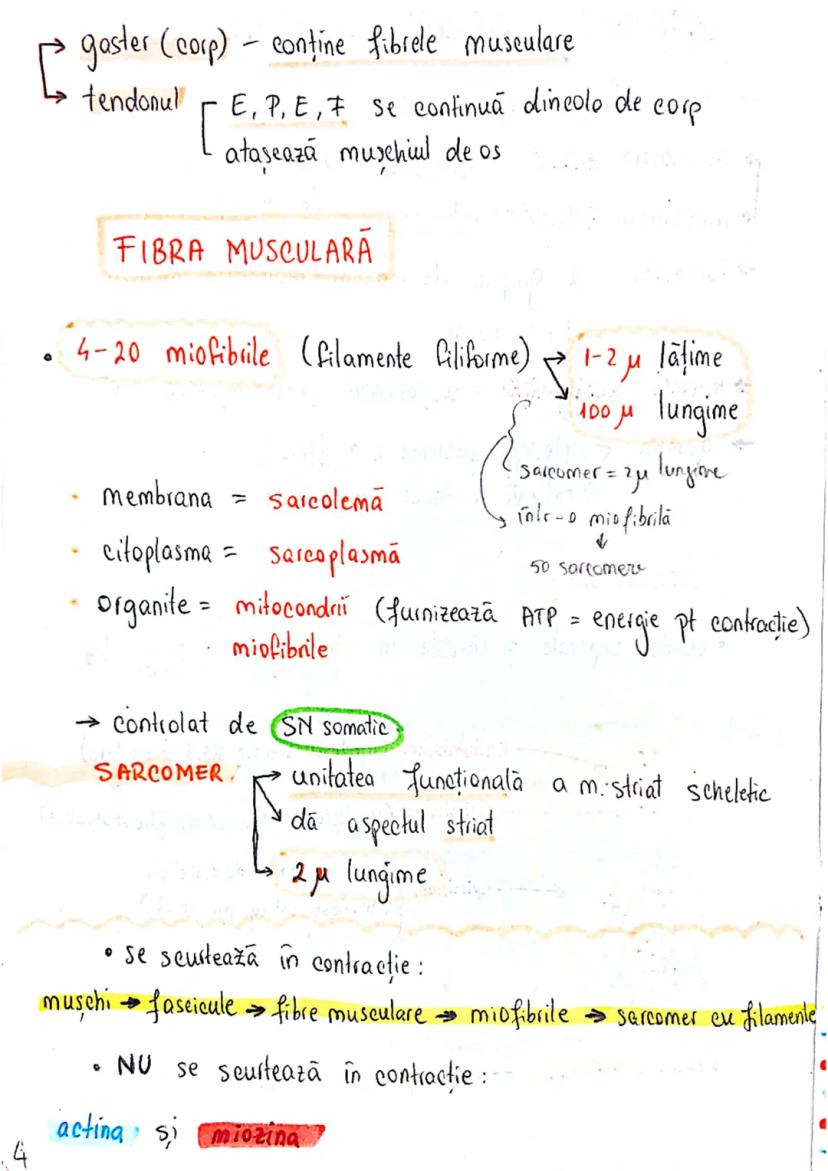 → gaster (corp) - conține fibrele musculare
→ tendonul E, P, E, F se continuă dincolo de corp
atașează mușchiul de os
FIBRA MUSCULARĂ
• 4-20 miofibrile (filamente filiforme) → 1-2 µ lățime
→ 100 µ lungime
sarcomer = 2µ lungime
• membrana = sarcolemă
într-o miofibrilă
↓
• citoplasma = sarcoplasmă
50 sarcomere
• organite = mitocondrii (furnizează ATP = energie pt contracție)
miofibrile
→ controlat de SN somatic
SARCOMER → unitatea funcțională a m. striat scheletic
→ dă aspectul striat
→ 2 µ lungime
• se scurtează în contracție:
mușchi → fascicule → fibre musculare → miofibrile → sarcomer cu filamente
• NU se scurtează în contracție:
actina și miozina
4